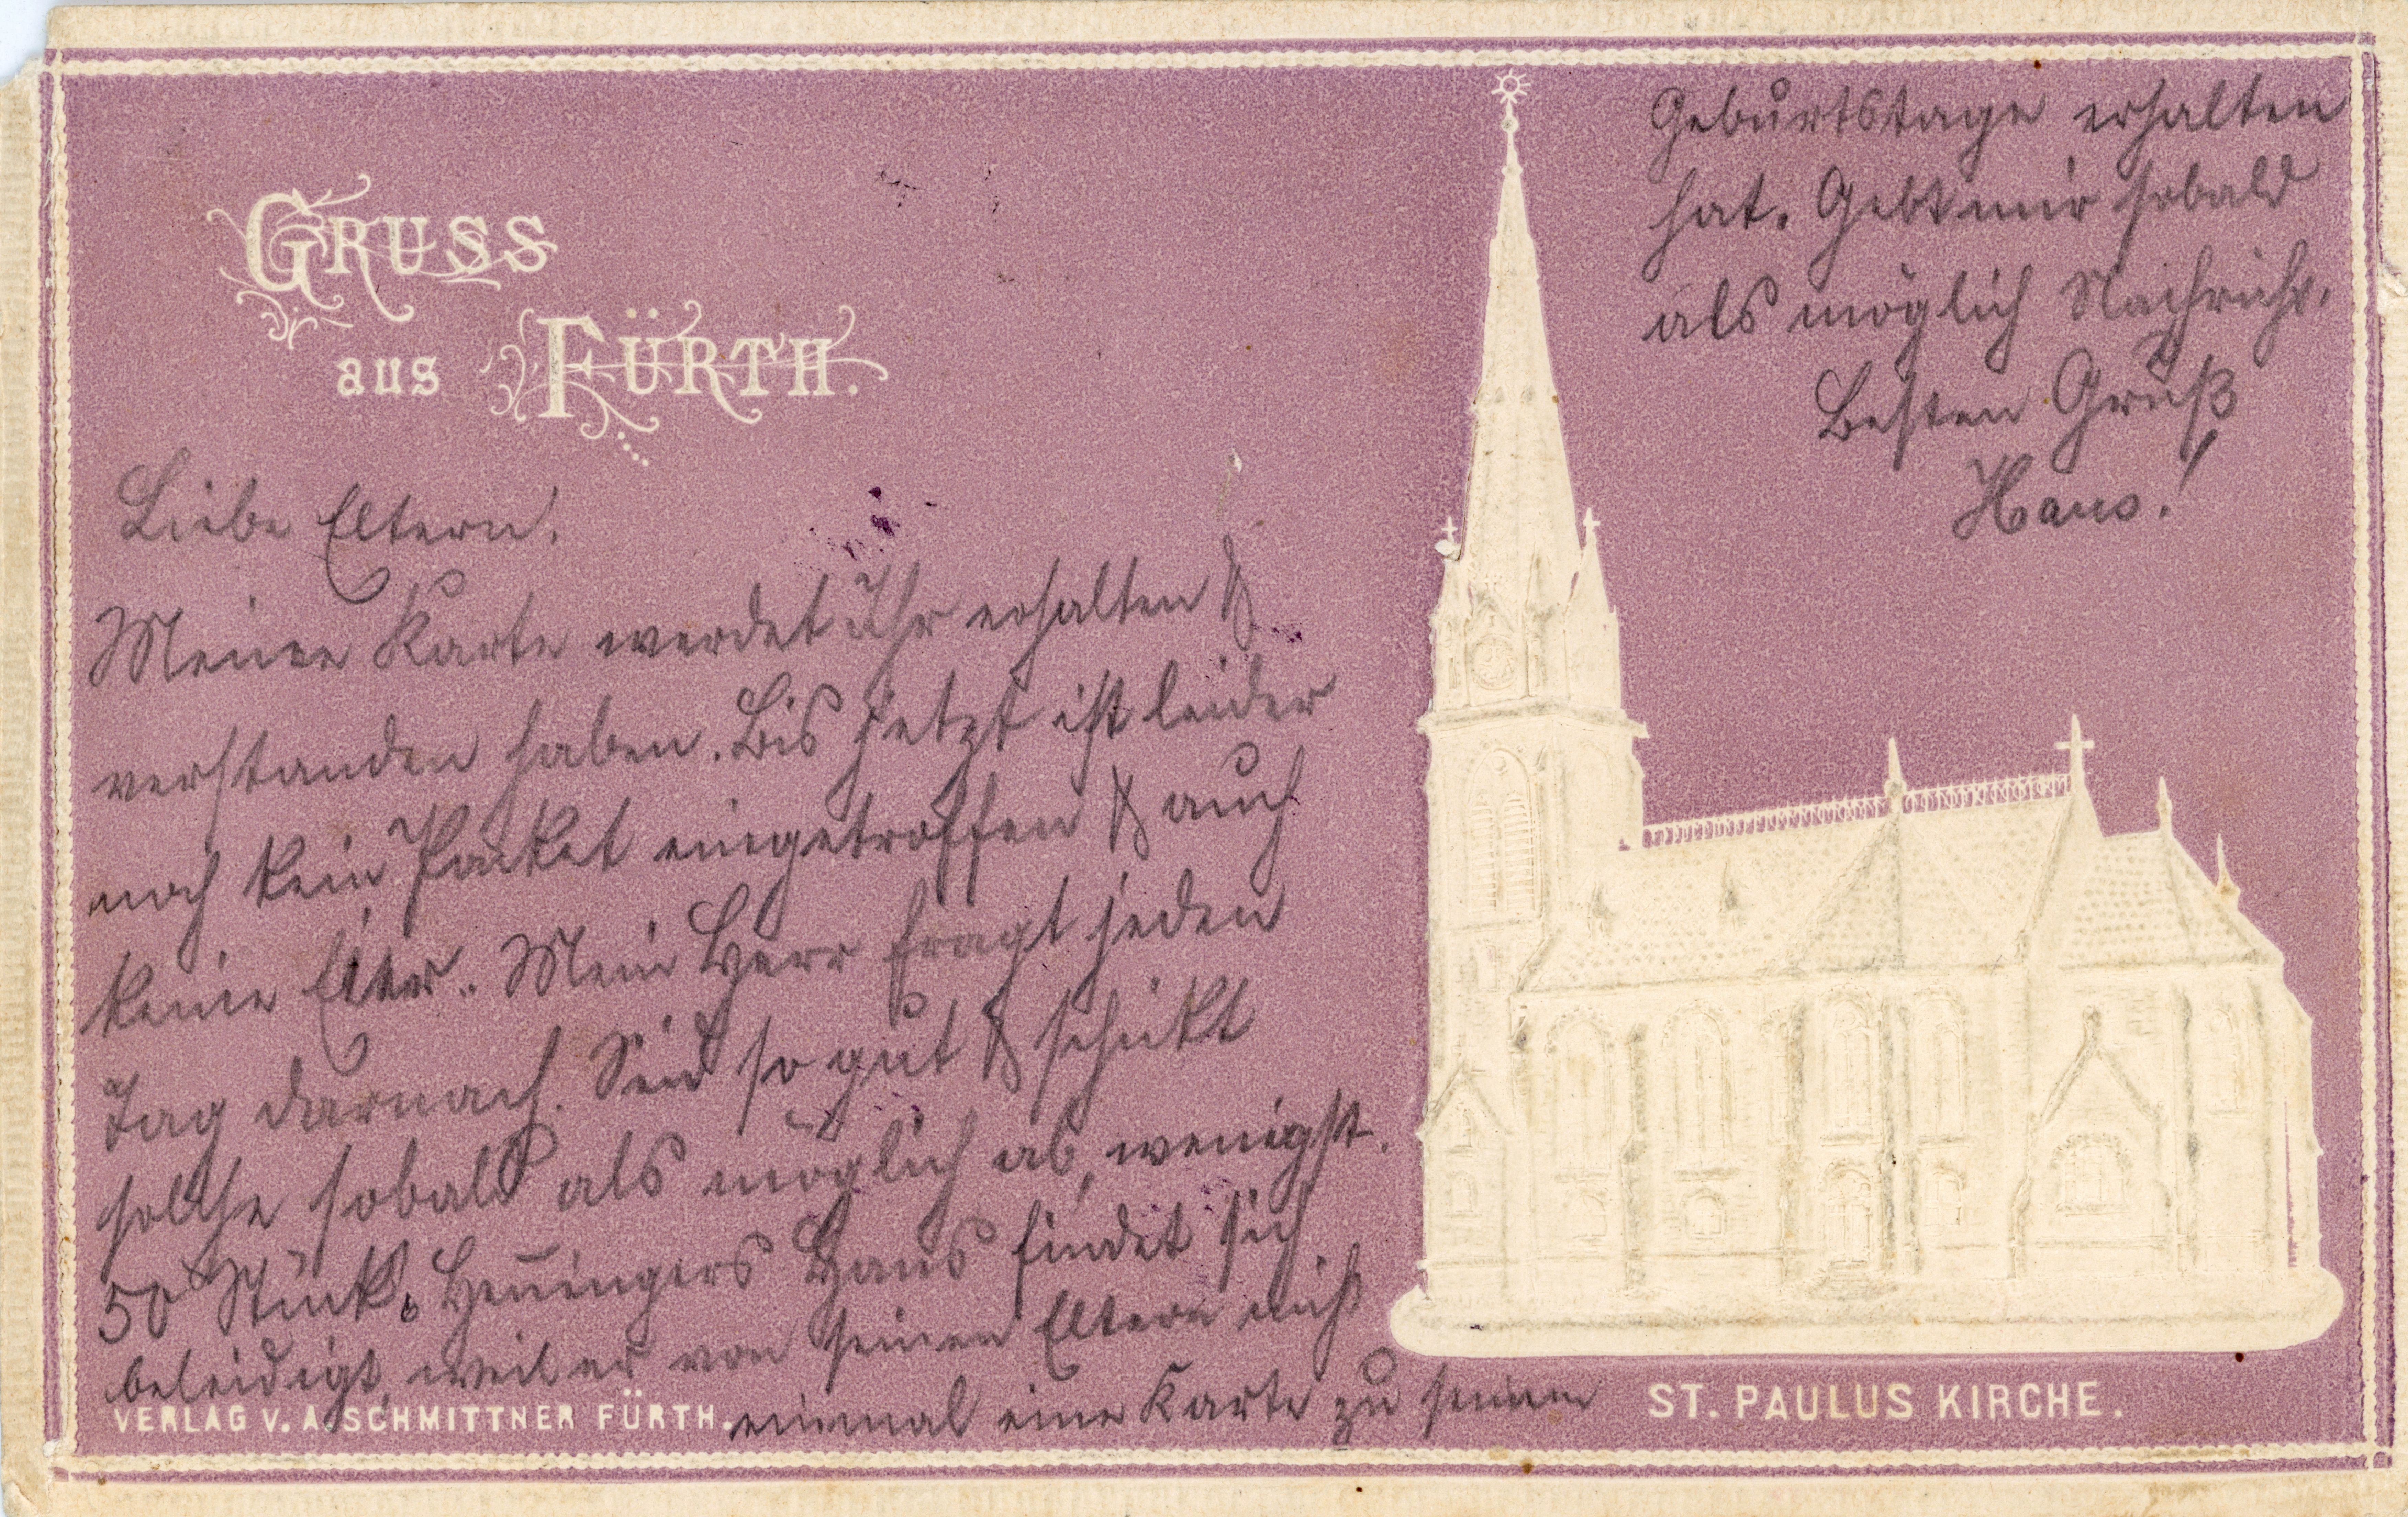 GRUSS
aus FÜRTH.
Liebe Eltern!
Meine Karte werdet ihr erhalten &
verstanden haben. Bis jetzt ist leider
noch kein Paket eingetroffen & auch
keine. Mein Herr fragt jeden
Tag darnach. Seid so gut & schikt
solche sobald als möglich ab, wenigst.
50 Stück. Hans findet sich
beleidigt, weil er von seinen Eltern nicht
einmal eine Karte zu seinem
Geburtstage erhalten
hat. Gebt mir sobald
als möglich Nachricht.
Besten Gruß
Hans!
ST. PAULUS KIRCHE.
VERLAG V. A. SCHMITTNER FÜRTH.